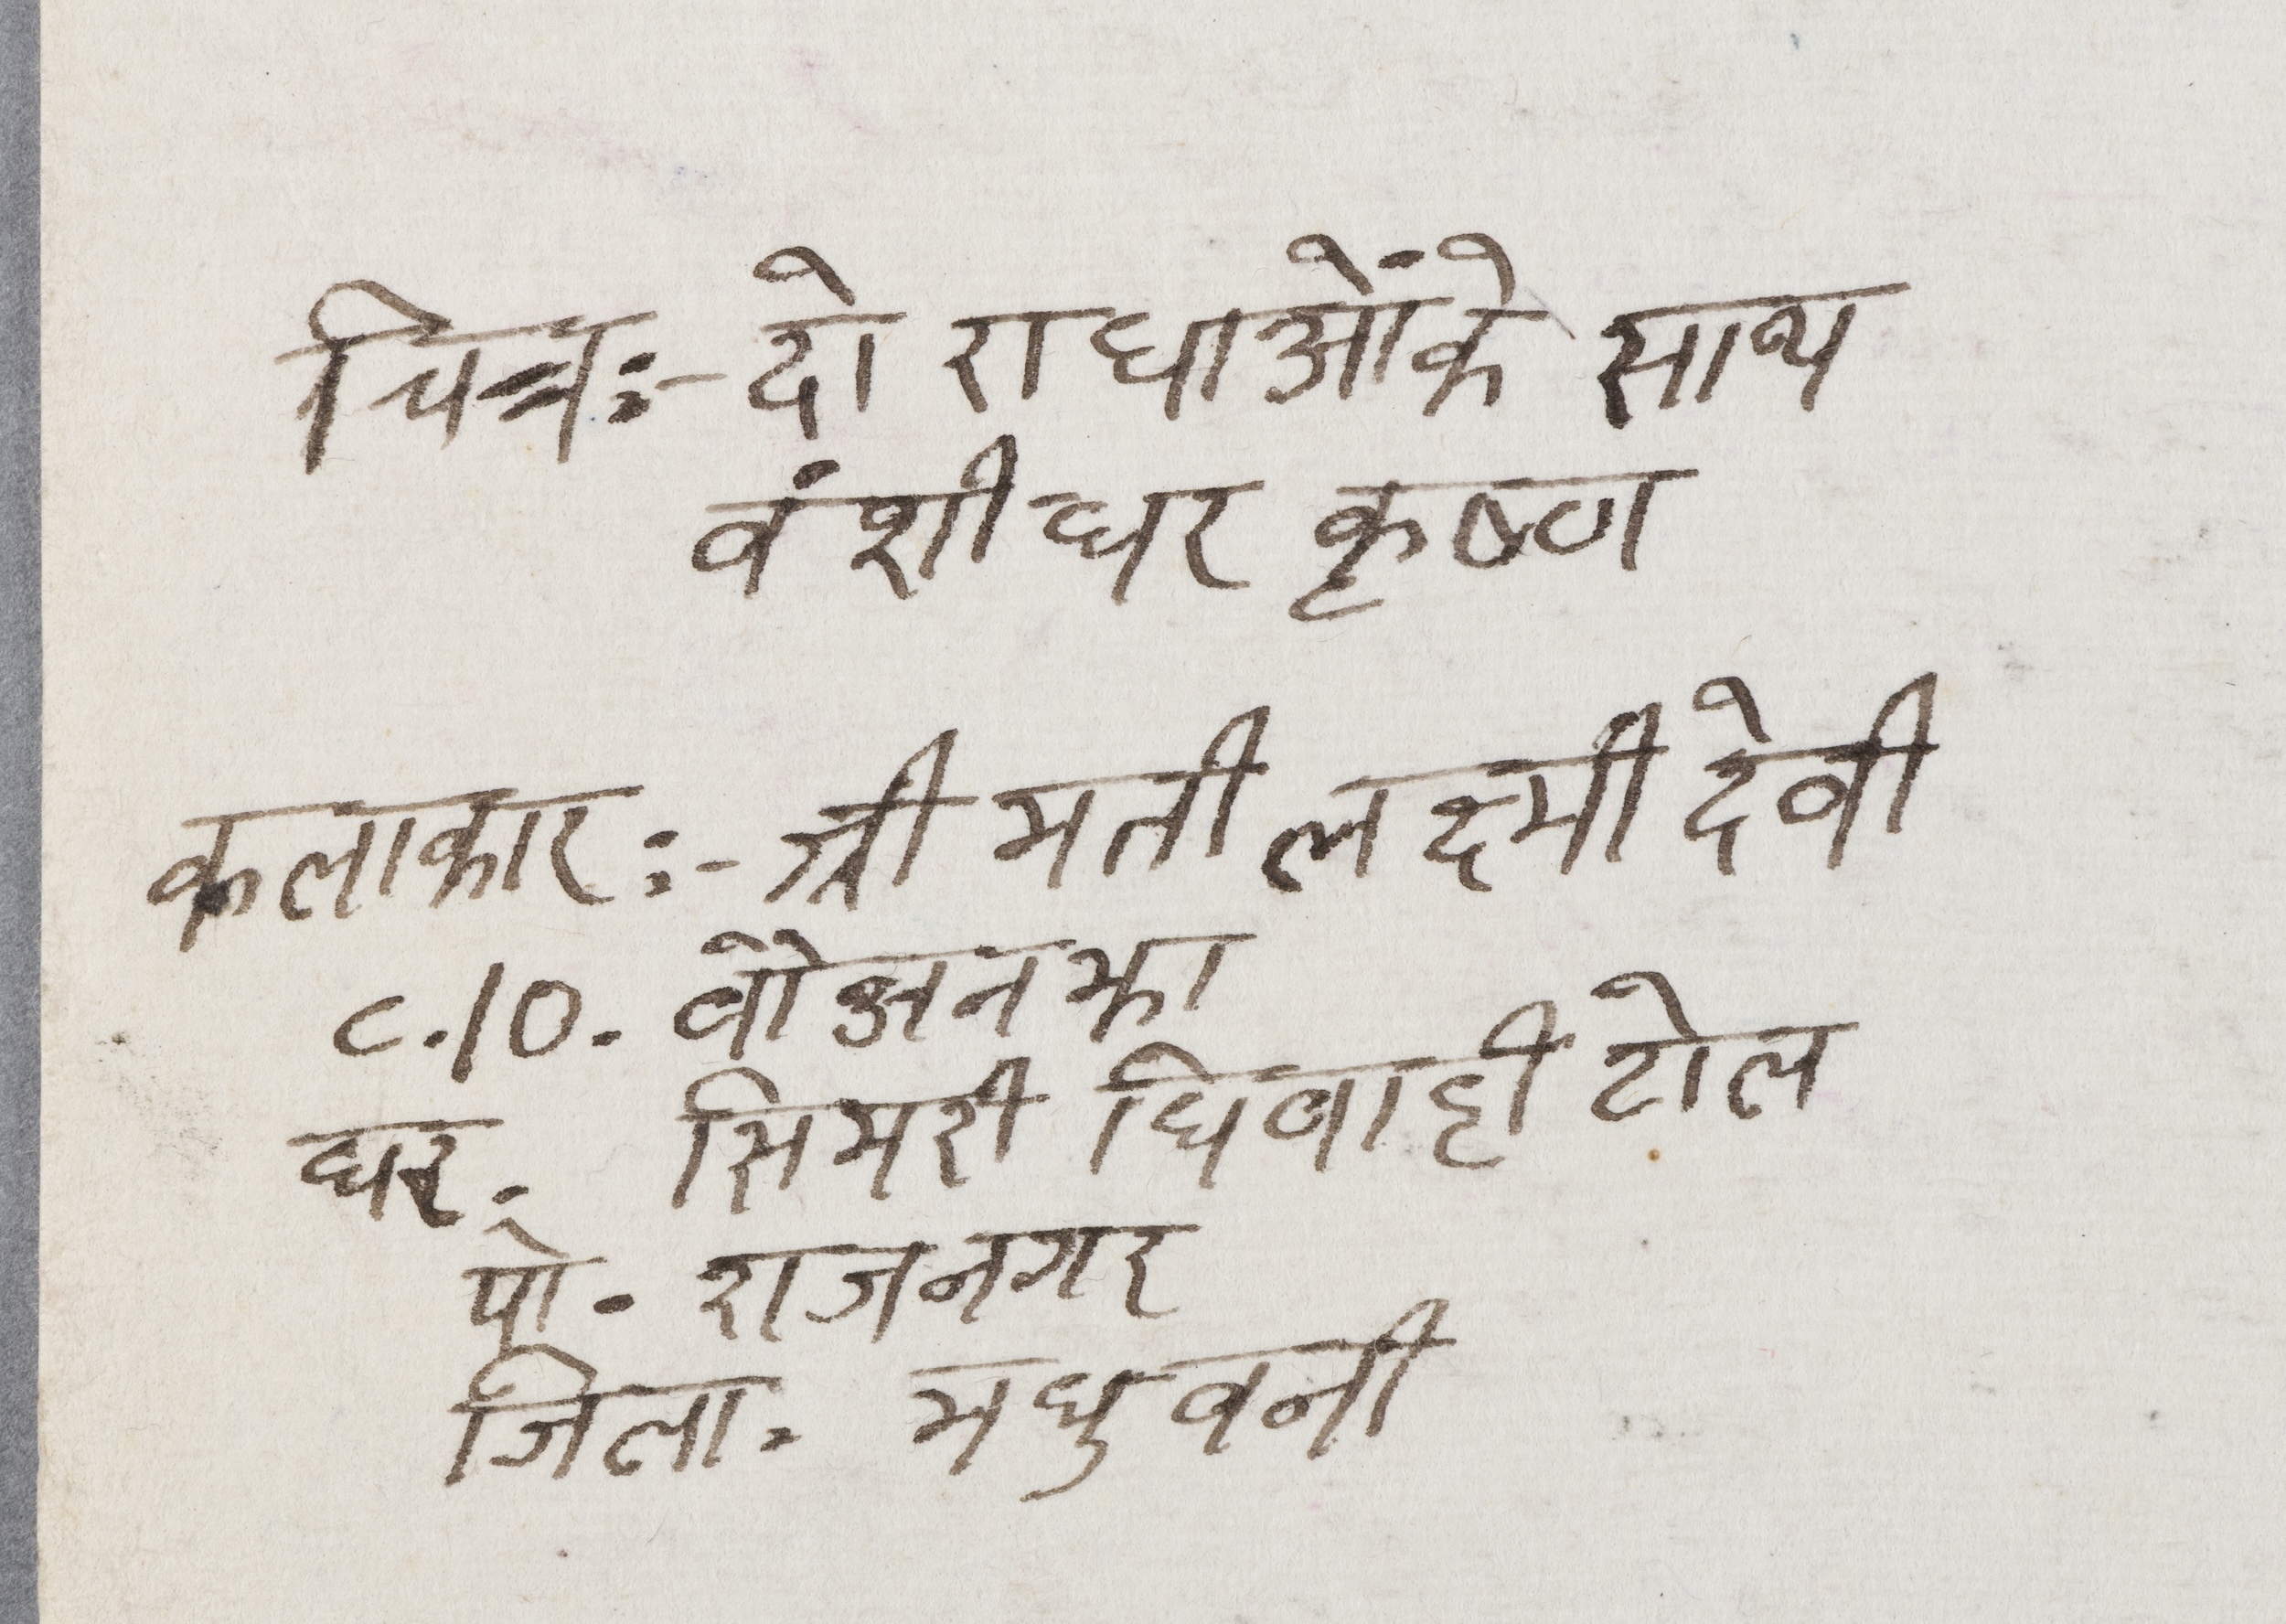 चित्र:- दो राधाओं के साथ
वंशीधर कृष्ण
कलाकार:- श्री मती लक्ष्मी देवी
C./O. वौअन झा
घर. सिमरी घिवाही टोल
पो. राजनगर
जिला. मधुवनी